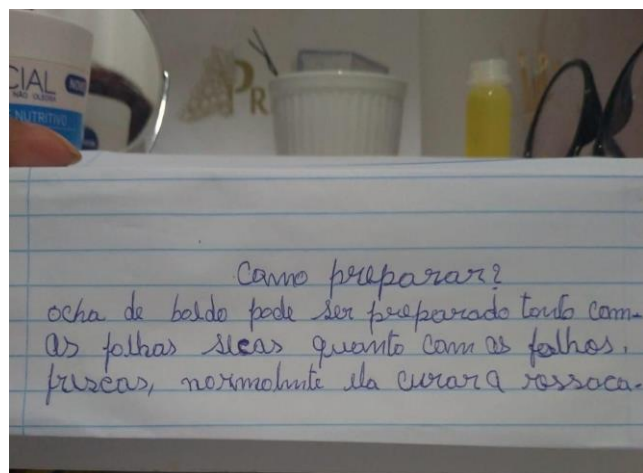 CIAL
NOVO
NÃO OLEOSA
NUTRITIVO
PR
Camo preparar?
ocha de boldo pode ser preparado tonto com
as folhas secas quanto com as folhos.
frescas, normolmente ela curar a rossaca.